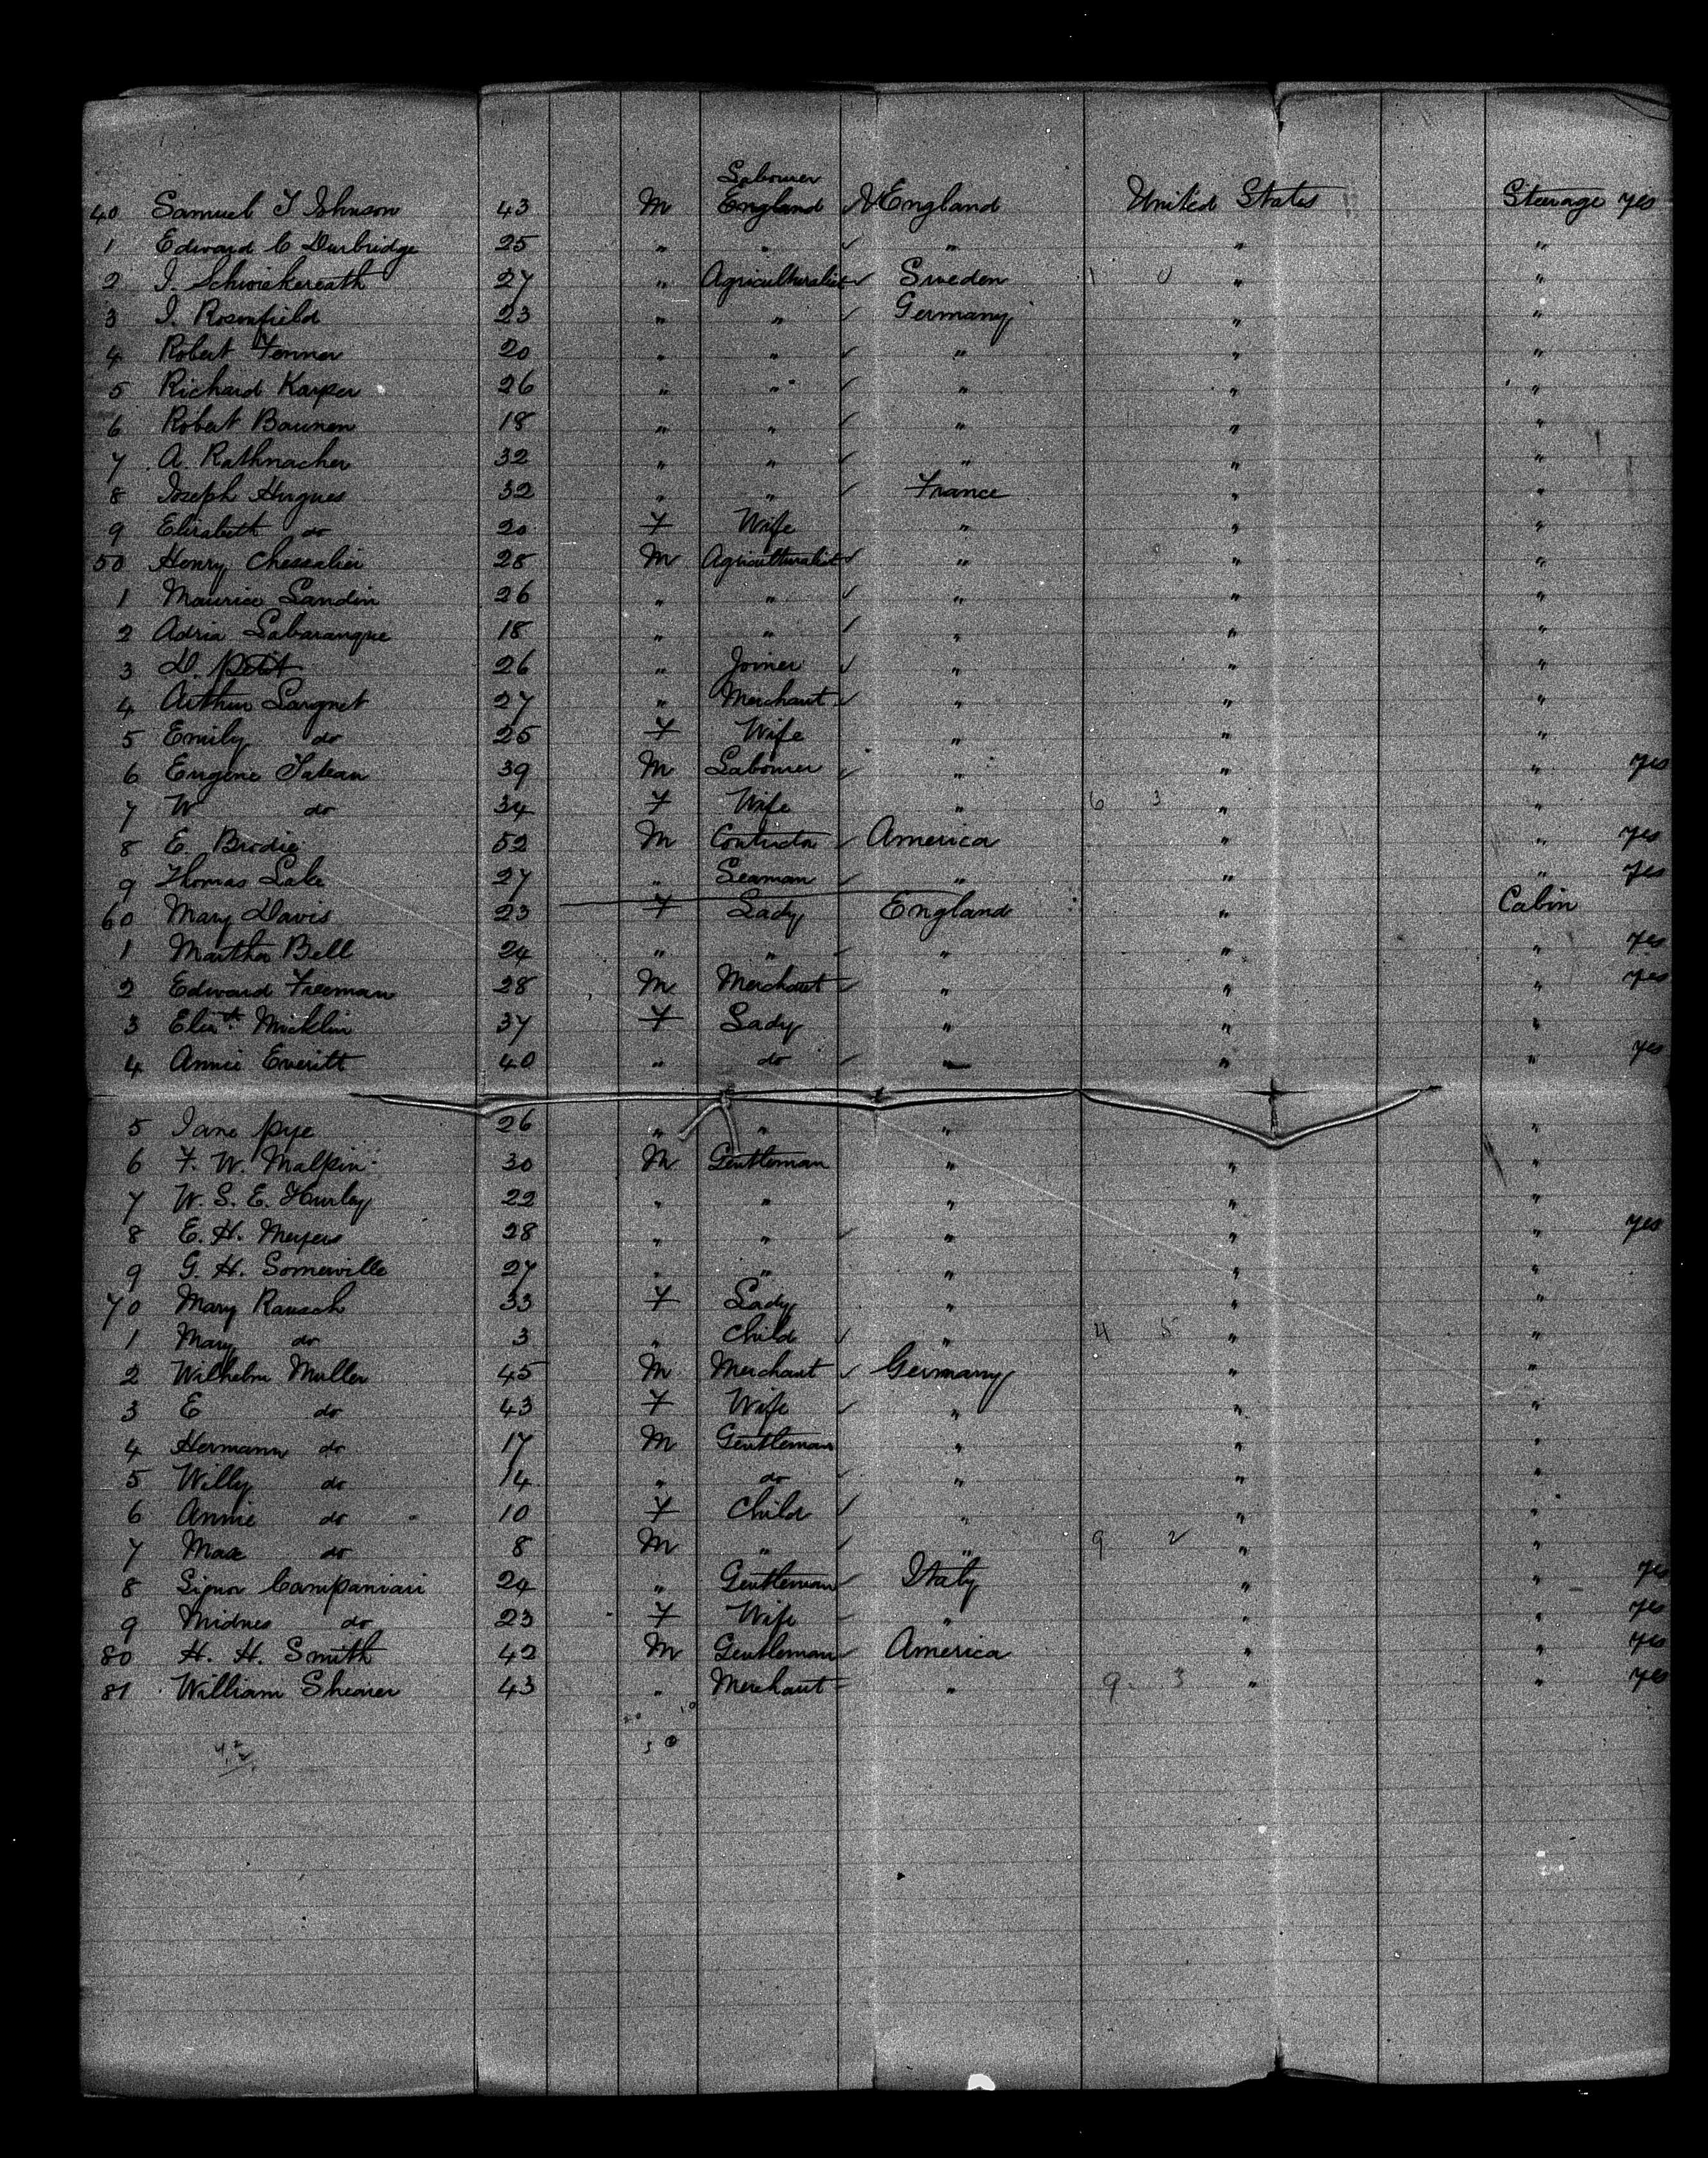 Labourer
40 Samuel T Johnson 43 M England England United States Steerage yes
1 Edward C Durbridge 25 " " " " "
2 J. Schwiekereath 27 " Agriculturalist Sweden 1 0 " "
3 J. Rosenfield 23 " " Germany " "
4 Robert Fenner 20 " " " " "
5 Richard Karper 26 " " " " "
6 Robert Baumen 18 " " " " "
7 A. Rathmacher 32 " " " " "
8 Joseph Hugues 32 " " France " "
9 Elizabeth do 20 F Wife " " "
50 Henry Chessalier 28 M Agriculturalist " " "
1 Maurice Landin 26 " " " " "
2 Adria Labaranque 18 " " " " "
3 D. Petit 26 " Joiner " " "
4 Arthur Largnet 27 " Merchant " " "
5 Emily do 25 F Wife " " "
6 Eugene 39 M Labourer " " " yes
7 W do 34 F Wife " 6 3 " "
8 E. Brodie 52 M Contractor America " " yes
9 Thomas Lake 27 " Seaman " " " yes
60 Mary Davis 23 F Lady England " Cabin
1 Martha Bell 24 " " " " " yes
2 Edward Freeman 28 M Merchant " " " yes
3 Elizth Micklin 37 F Lady " " "
4 Annie Everitt 40 " do " " " yes
5 Jane Pye 26 " " " "
6 F. W. Malpin 30 M Gentleman " " "
7 W. S. E. Hurley 22 " " " " "
8 E. H. Meyers 28 " " " " " yes
9 G. H. Somerville 27 " " " " "
70 Mary Rausch 33 F Lady " " "
1 Mary do 3 " Child " 4 5 " "
2 Wilhelm Muller 45 M Merchant Germany " "
3 E do 43 F Wife " " "
4 Hermann do 17 M Gentleman " " "
5 Willy do 14 " do " " "
6 Annie do 10 F Child " " "
7 Max do 8 M " " 9 2 " "
8 Signor Campaniari 24 " Gentleman Italy " " yes
9 do 23 F Wife " " " yes
80 H. H. Smith 42 M Gentleman America " " yes
81 William Shearer 43 " Merchant " 9 3 " " yes
42